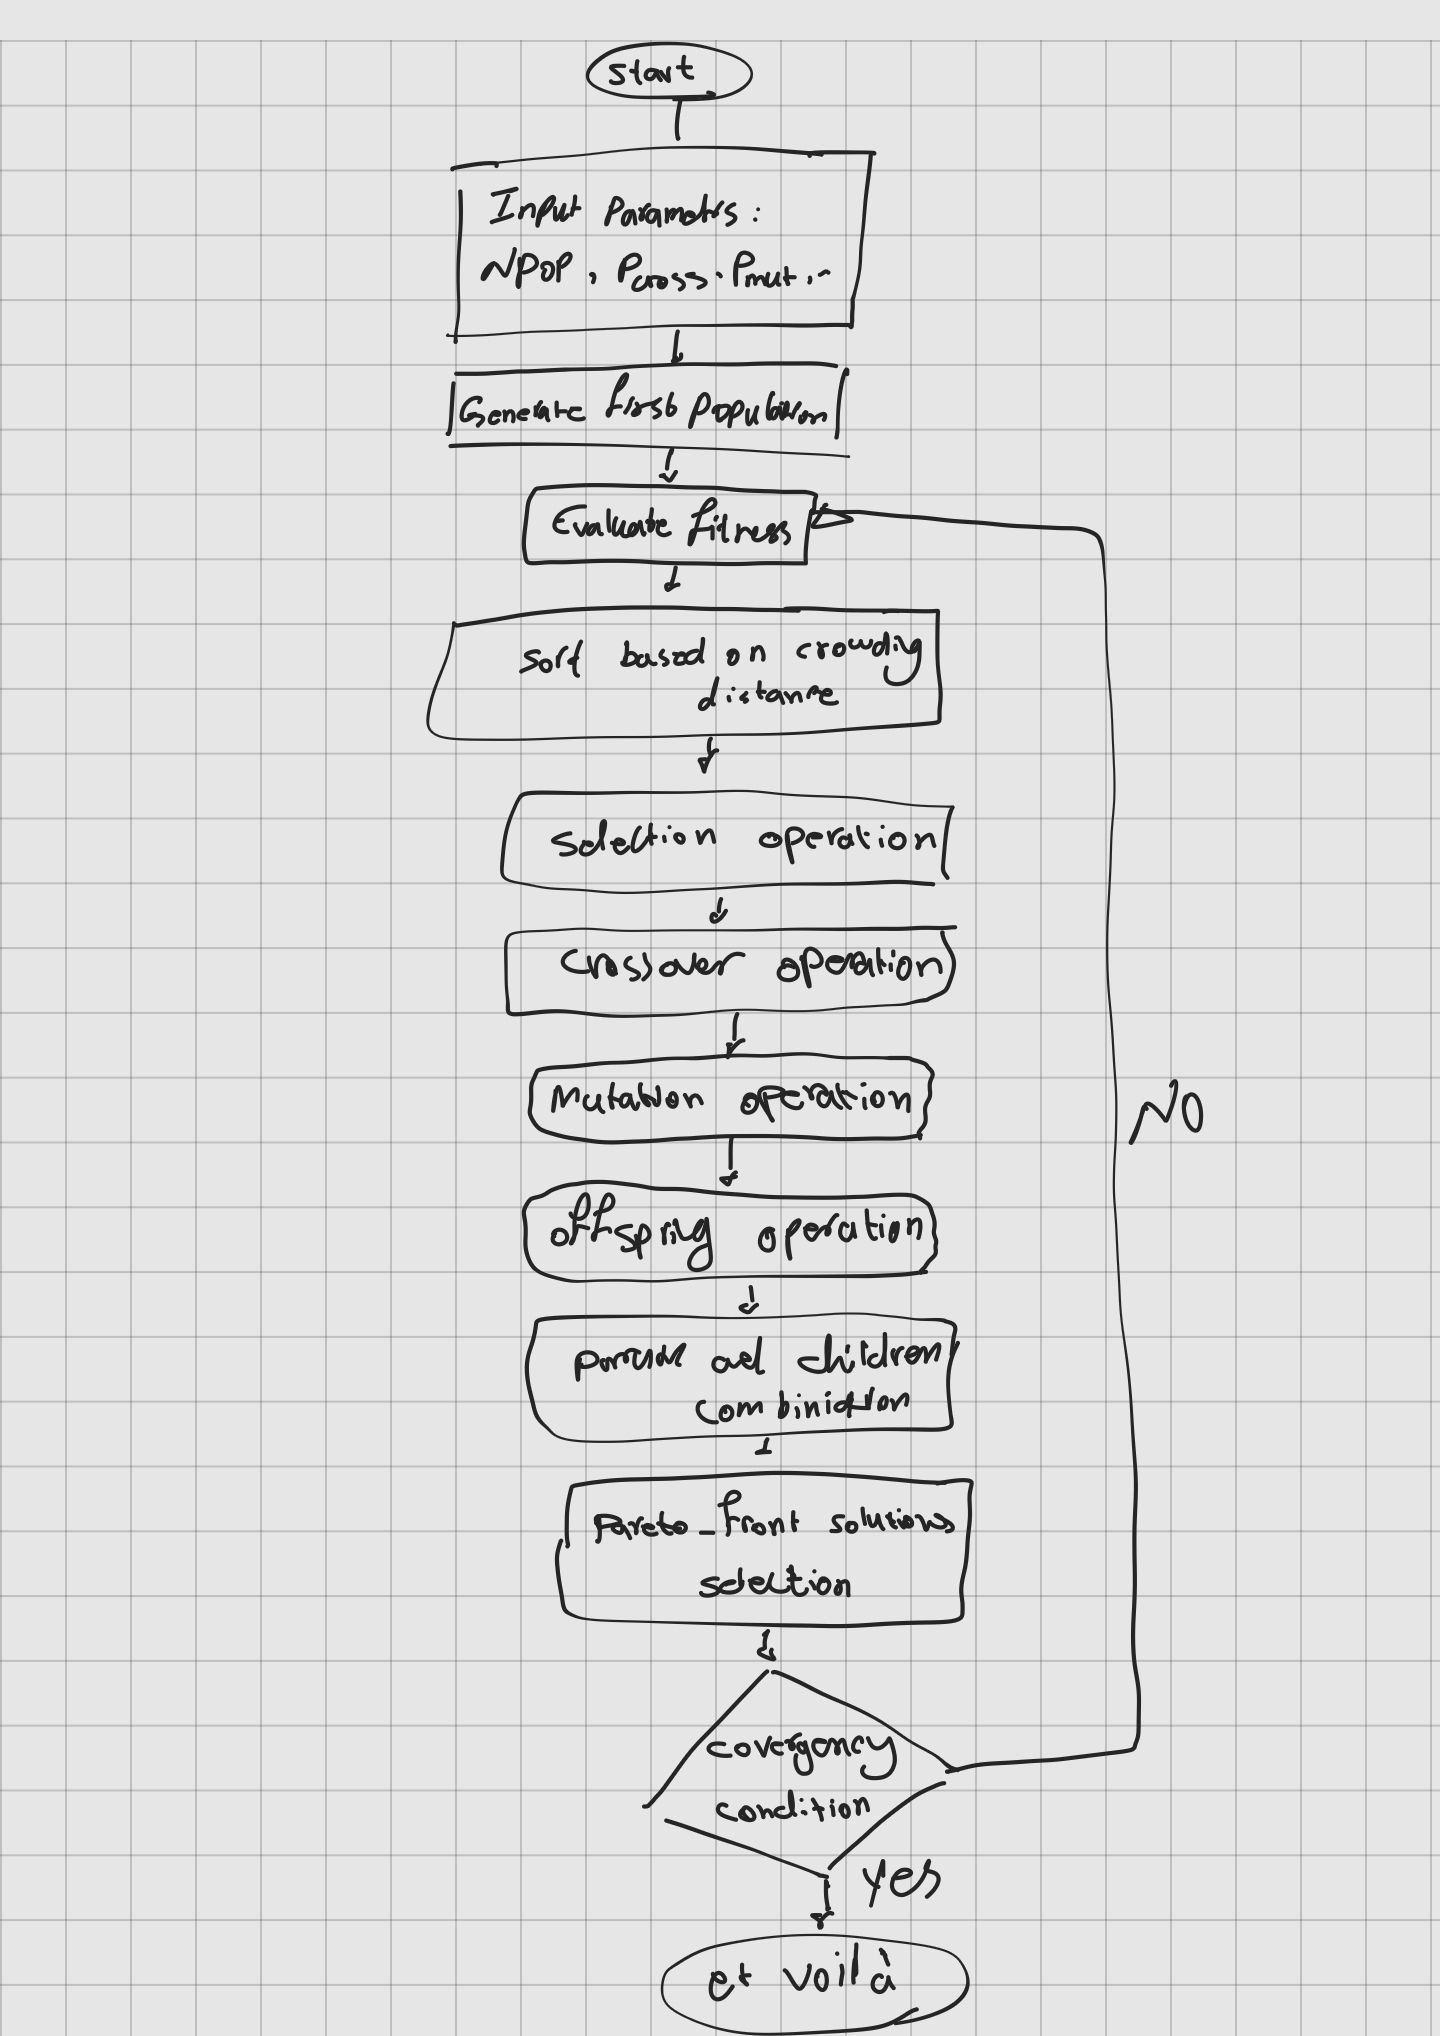 start
Input Parametrs :
NPOP , Pcross . Pmut . -
Generate first population
Evaluate fitness
sort based on crowding
distance
selection operation
Crossover operation
Mutation operation
offspring operation
children
combinidtion
Pareto_front solutions
selection
covergency
condition
NO
yes
et voilà